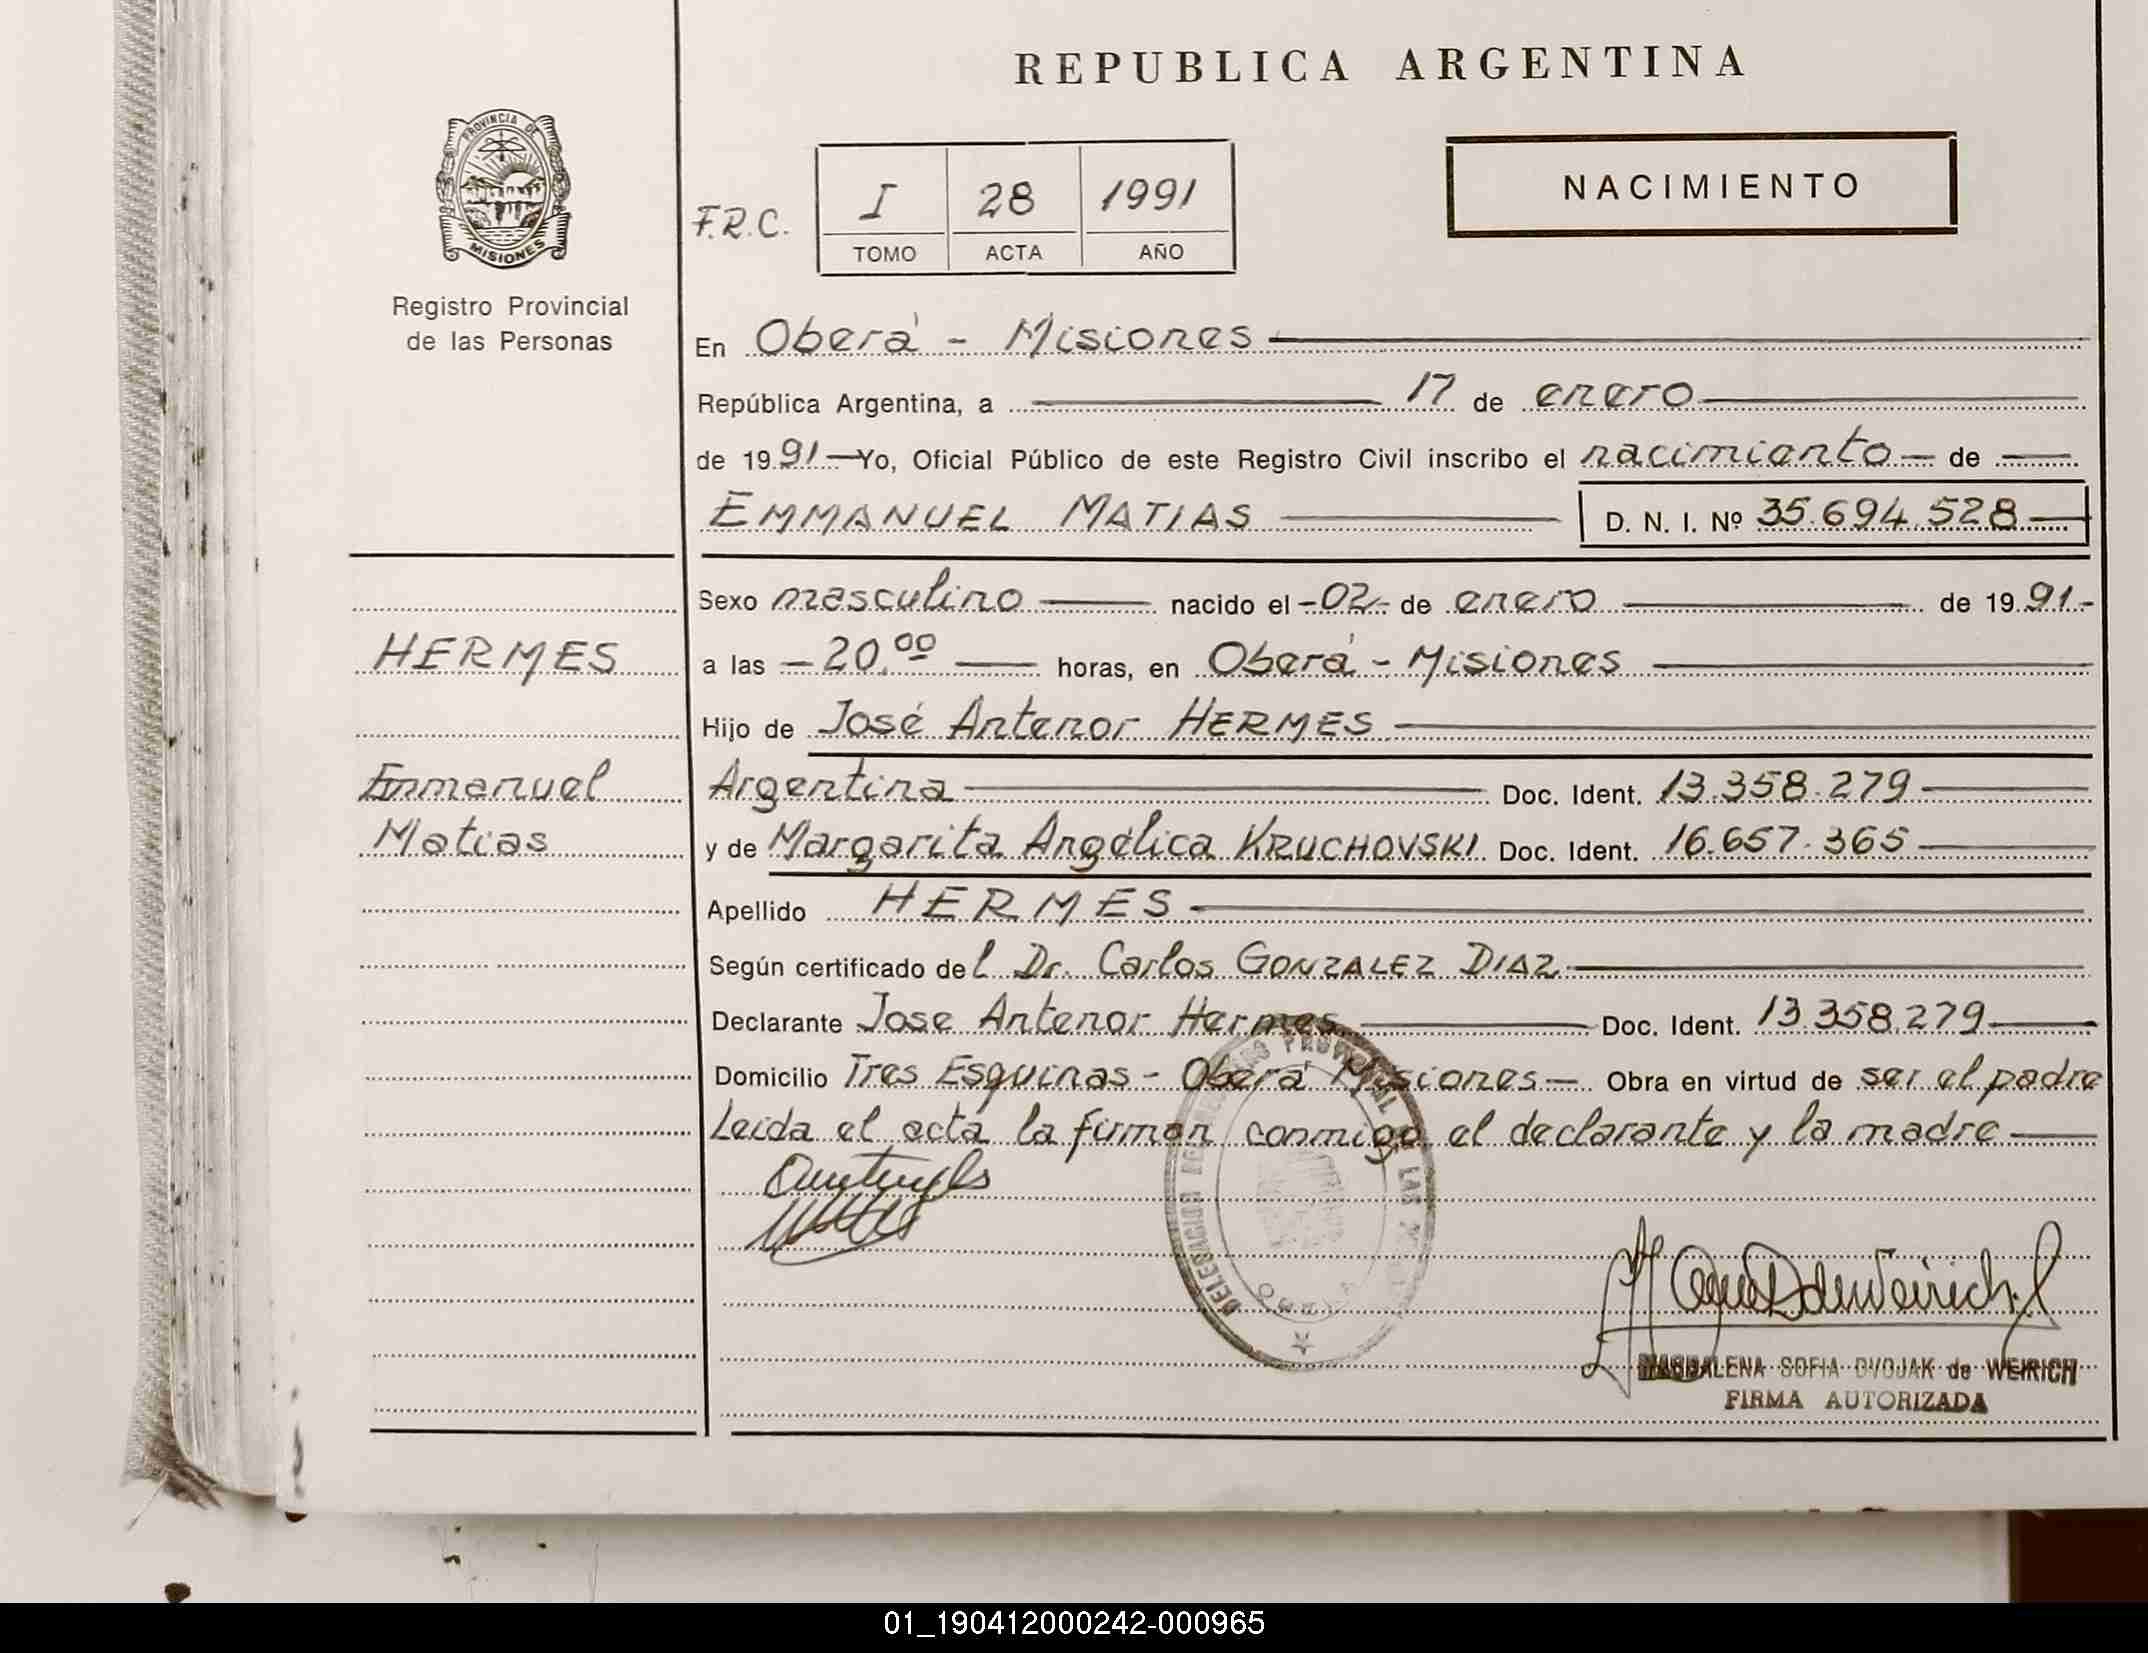 REPUBLICA ARGENTINA
PROVINCIA DE
MISIONES
Registro Provincial
de las Personas
F.R.C.
I 28 1991
TOMO ACTA AÑO
NACIMIENTO
En Oberá - Misiones
República Argentina, a 17 de enero
de 1991 Yo, Oficial Público de este Registro Civil inscribo el nacimiento de
EMMANUEL MATIAS D. N. I. Nº 35.694.528
Sexo masculino nacido el -02- de enero de 1991-
HERMES
a las -20.00 horas, en Oberá - Misiones
Hijo de José Antenor HERMES
Emmanuel
Matias
Argentina Doc. Ident. 13.358.279
y de Margarita Angélica KRUCHOVSKI Doc. Ident. 16.657.365
Apellido HERMES
Según certificado del Dr. Carlos GONZALEZ DIAZ
Declarante Jose Antenor Hermes Doc. Ident. 13.358.279
Domicilio Tres Esquinas - Oberá Misiones - Obra en virtud de ser el padre
Leida el acta la firman conmigo el declarante y la madre
DELEGACION PROVINCIAL DE LAS
MAGDALENA SOFIA DVOJAK de WEIRICH
FIRMA AUTORIZADA
01_190412000242-000965